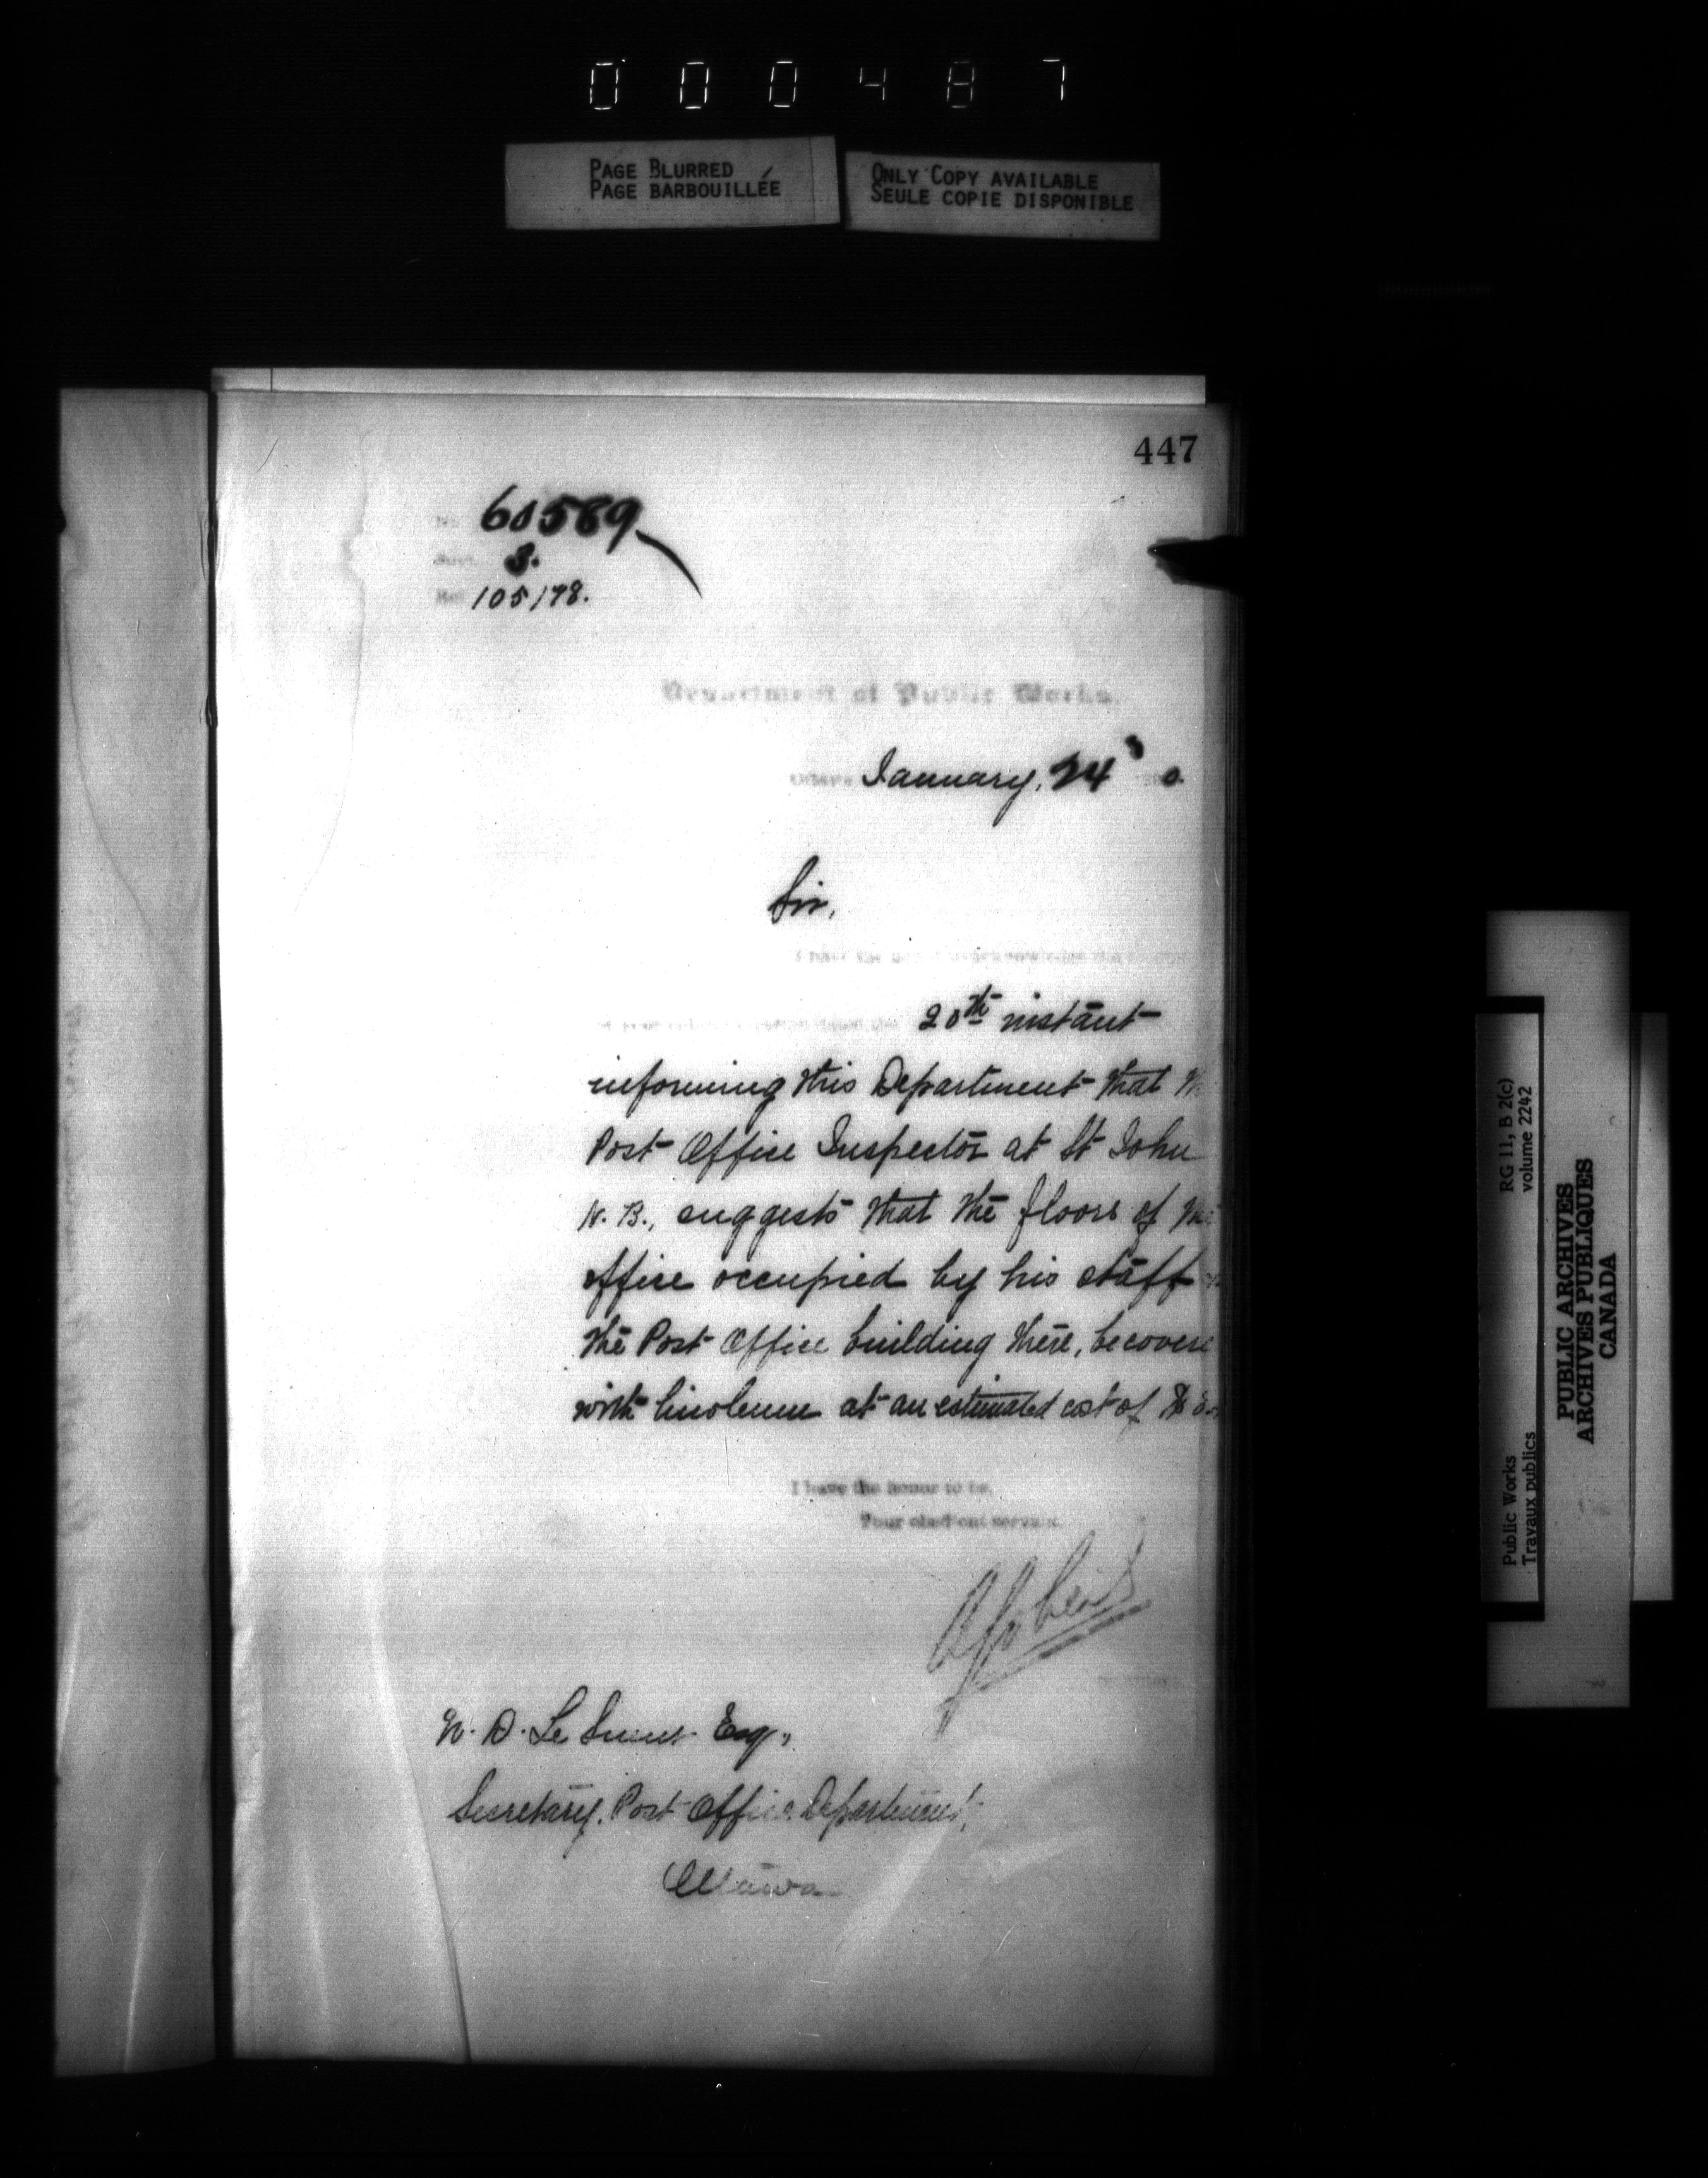 000487
PAGE BLURRED
PAGE BARBOUILLÉE
ONLY COPY AVAILABLE
SEULE COPIE DISPONIBLE
447
60589
3.
105178.
Department of Public Works.
Ottawa January, 24
Sir,
I have the acknowledge the
20th instant
informing this Department that
Post Office Inspector at St John
N. B., suggests that the floors of the
office occupied by his staff
the Post Office building there, be covere
with linoleum at an estimated cost of $
I have the honor to be,
Your obedient servant.
W. D. Le Sueur Esq.,
Secretary. Post Office Department,
Ottawa
RG 11, B 2(c)
volume 2242
Public Works
Travaux publics
PUBLIC ARCHIVES
ARCHIVES PUBLIQUES
CANADA